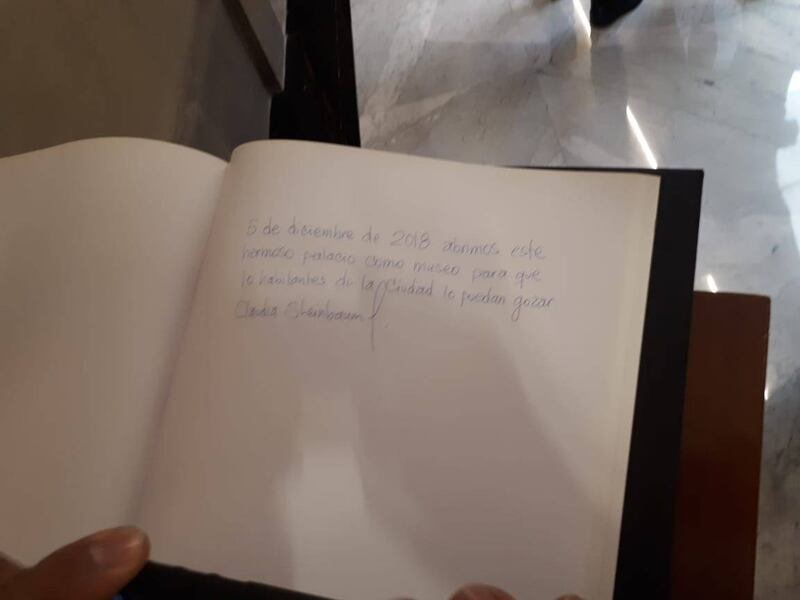 5 de diciembre de 2018 abrimos este
hermoso palacio como museo para que
lo habitantes de la Ciudad lo puedan gozar
Claudia Sheinbaum